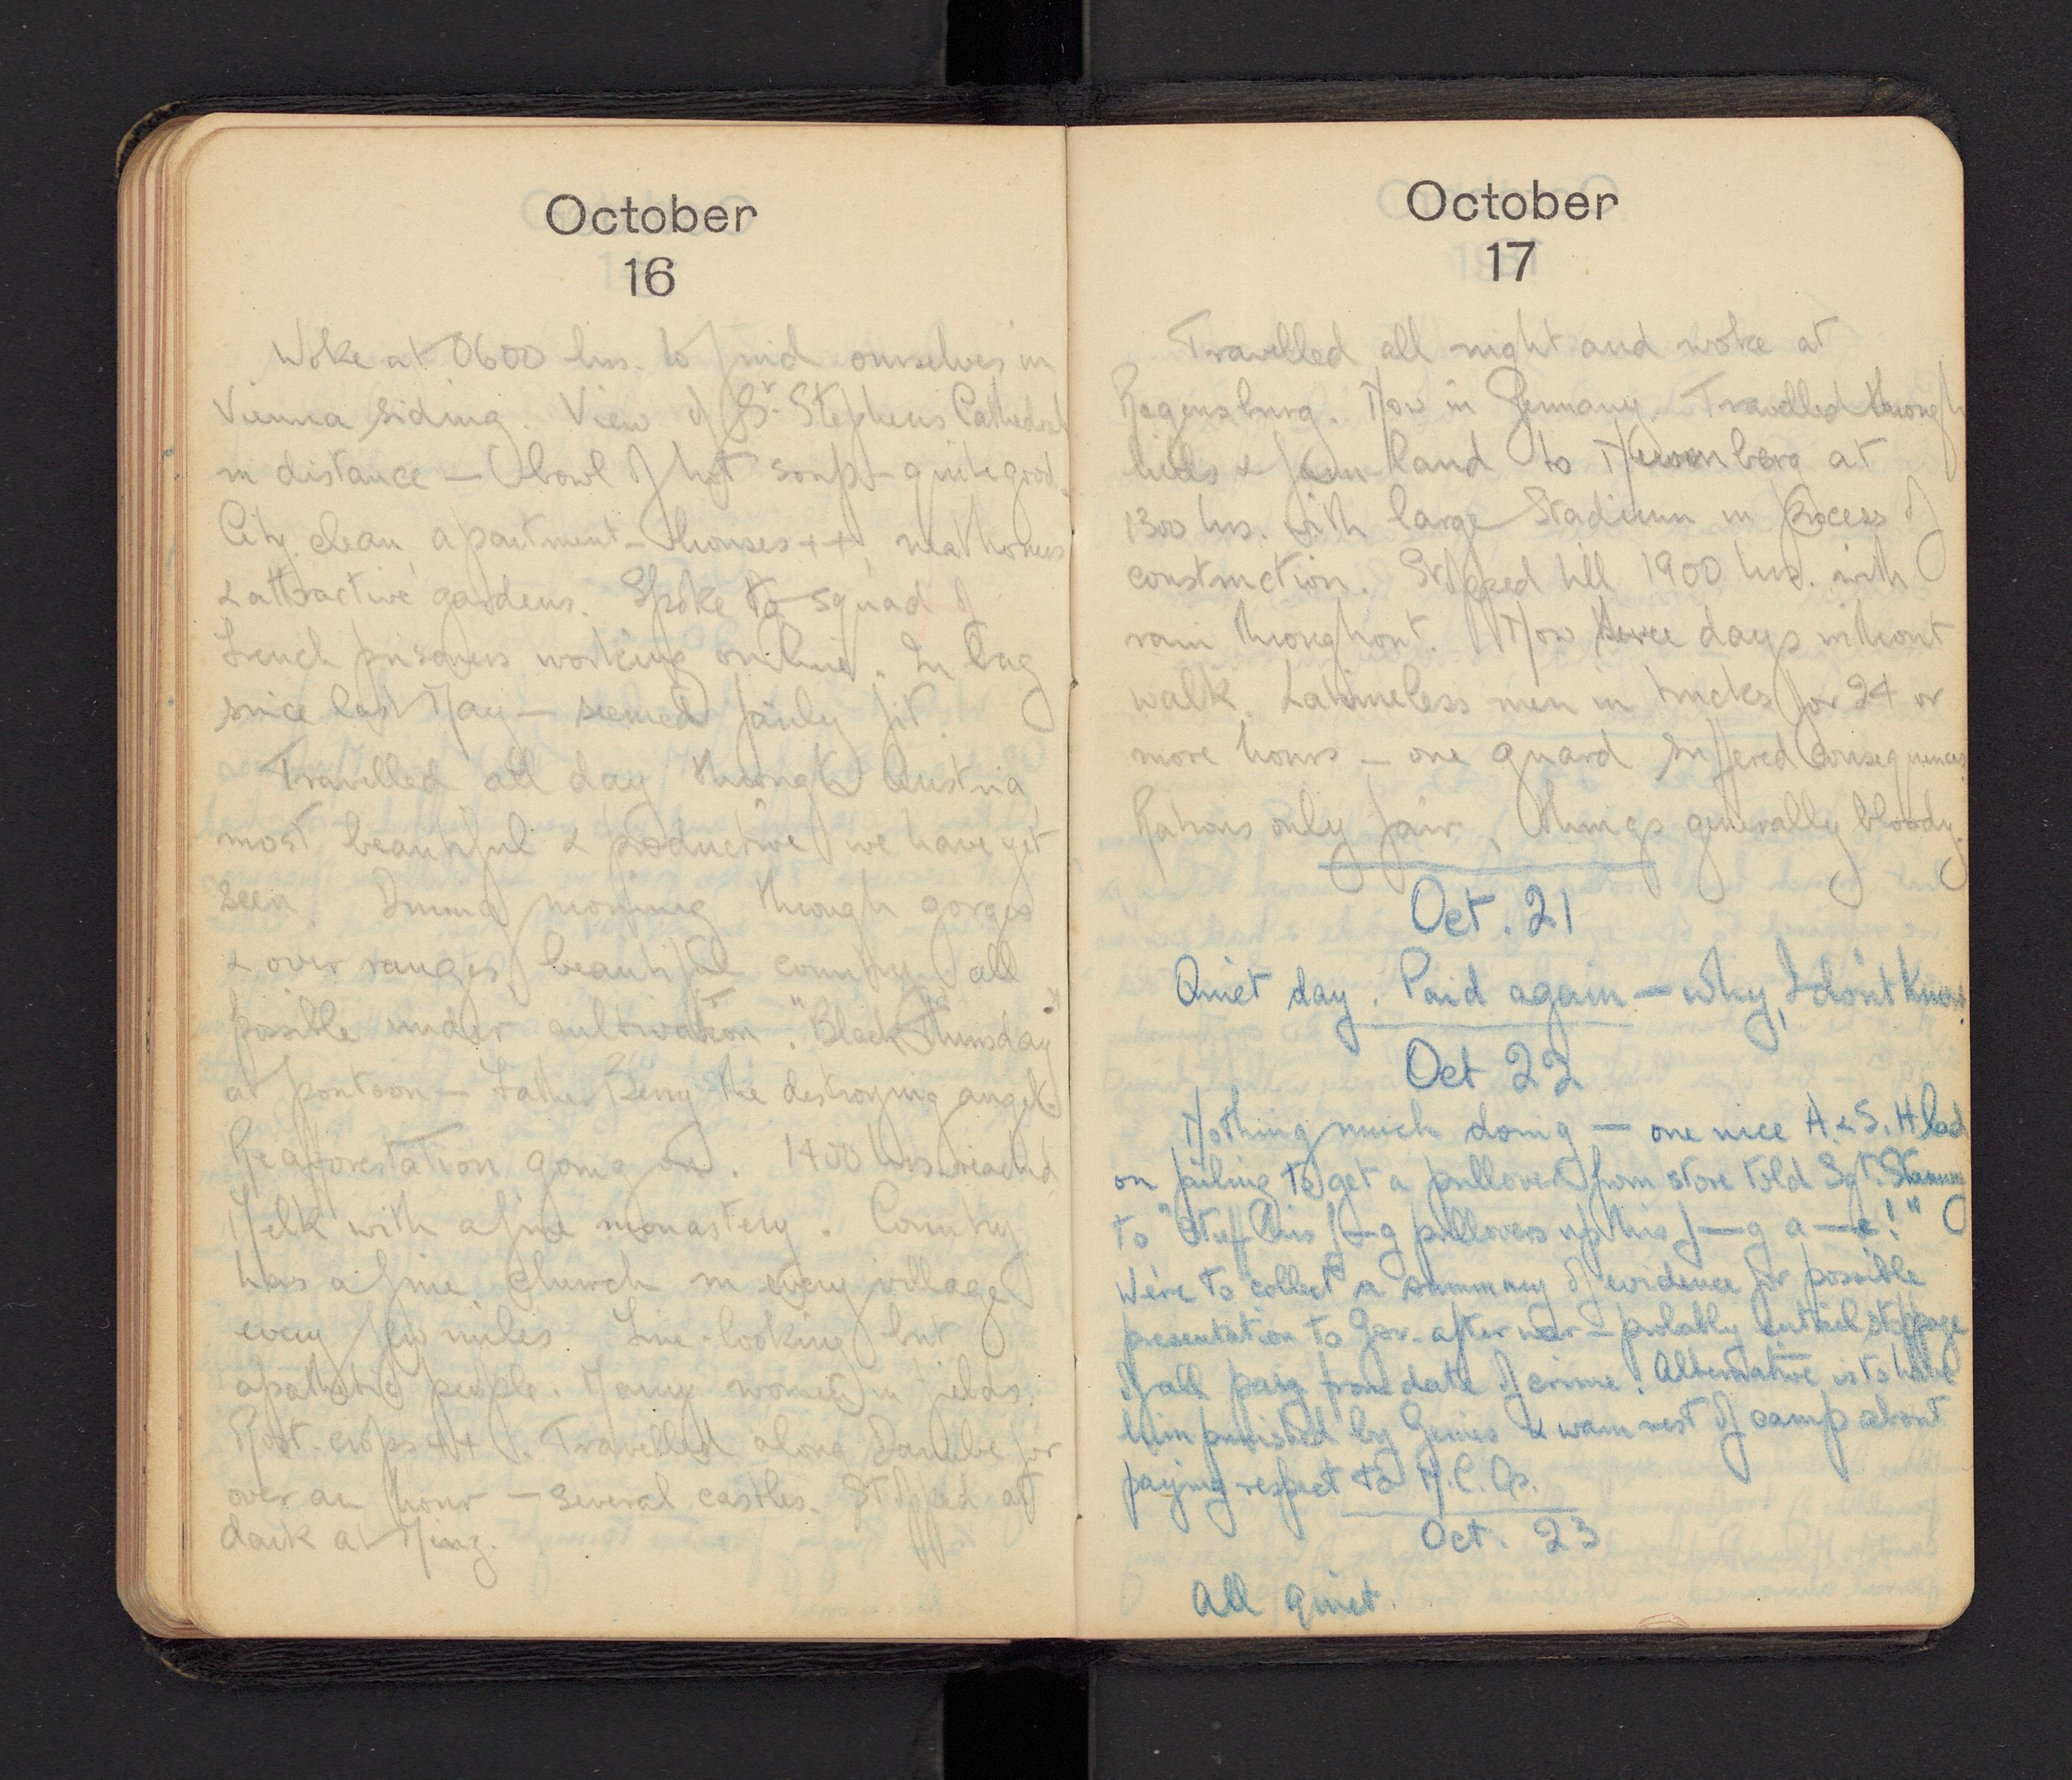 October
16
Woke at 0600 hrs. to find ourselves in
Vienna siding. View of St. Stephens Cathedral
in distance — bowl of hot soup — quite good.
City clean, apartment-houses ++, neat homes
& attractive gardens. Spoke to squad of
French prisoners working on line. In bag
since last May — seemed fairly fit.
Travelled all day through Austria,
most beautiful & productive we have yet
seen. During morning through gorges
& over ranges, beautiful country all
possible under cultivation. "Black Thursday"
at pontoon — Father the destroying angel.
Reafforestation going on. 1400 hrs. reached
Melk with a fine monastery. Country
has a fine church in every village
every few miles. Fine-looking but
apathetic people. Many women in fields.
Root-crops ++. Travelled along Danube for
over an hour — several castles. Stopped at
dark at
October
17
Travelled all night and woke at
Regensburg. Now in Germany. Travelled through
hills & farm-land to Nuremberg at
1300 hrs. with large Stadium in process of
construction. Stopped till 1900 hrs. with
rain throughout. Now three days without
walk. Latrineless men in trucks for 24 or
more hours — one guard suffered consequences.
Rations only fair, things generally bloody.
Oct. 21
Quiet day. Paid again — why, I don't know.
Oct 22
Nothing much doing — one nice A. & S. H lad
on failing to get a pullover from store told Sgt.
to "Stuff his f—g pullovers up his f—g a—e!"
We're to collect a summary of evidence for possible
presentation to Gov. after war — probably entail stoppage
of all pay from date of crime! Alternative is to have
him punished by & warn rest of camp about
paying respect to N.C.Os.
Oct. 23
All quiet.